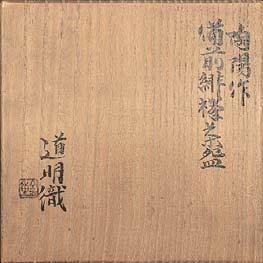 南陽作
備前緋襷茶盌
道明識